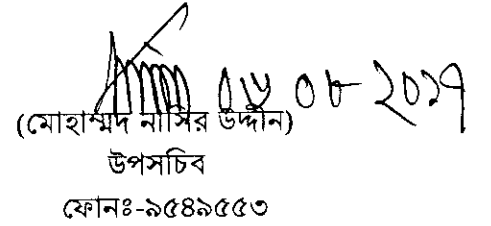 ০৮ ২০১৭
(মোহাম্মদ নাসির উদ্দীন)
উপসচিব
ফোনঃ-৯৫৪৯৫৫৩